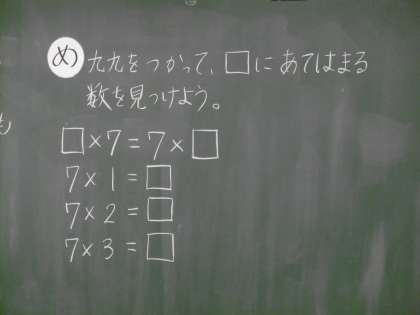 め 九九をつかって、□にあてはまる
数を見つけよう。
□×7=7×□
7×1=□
7×2=□
7×3=□
も